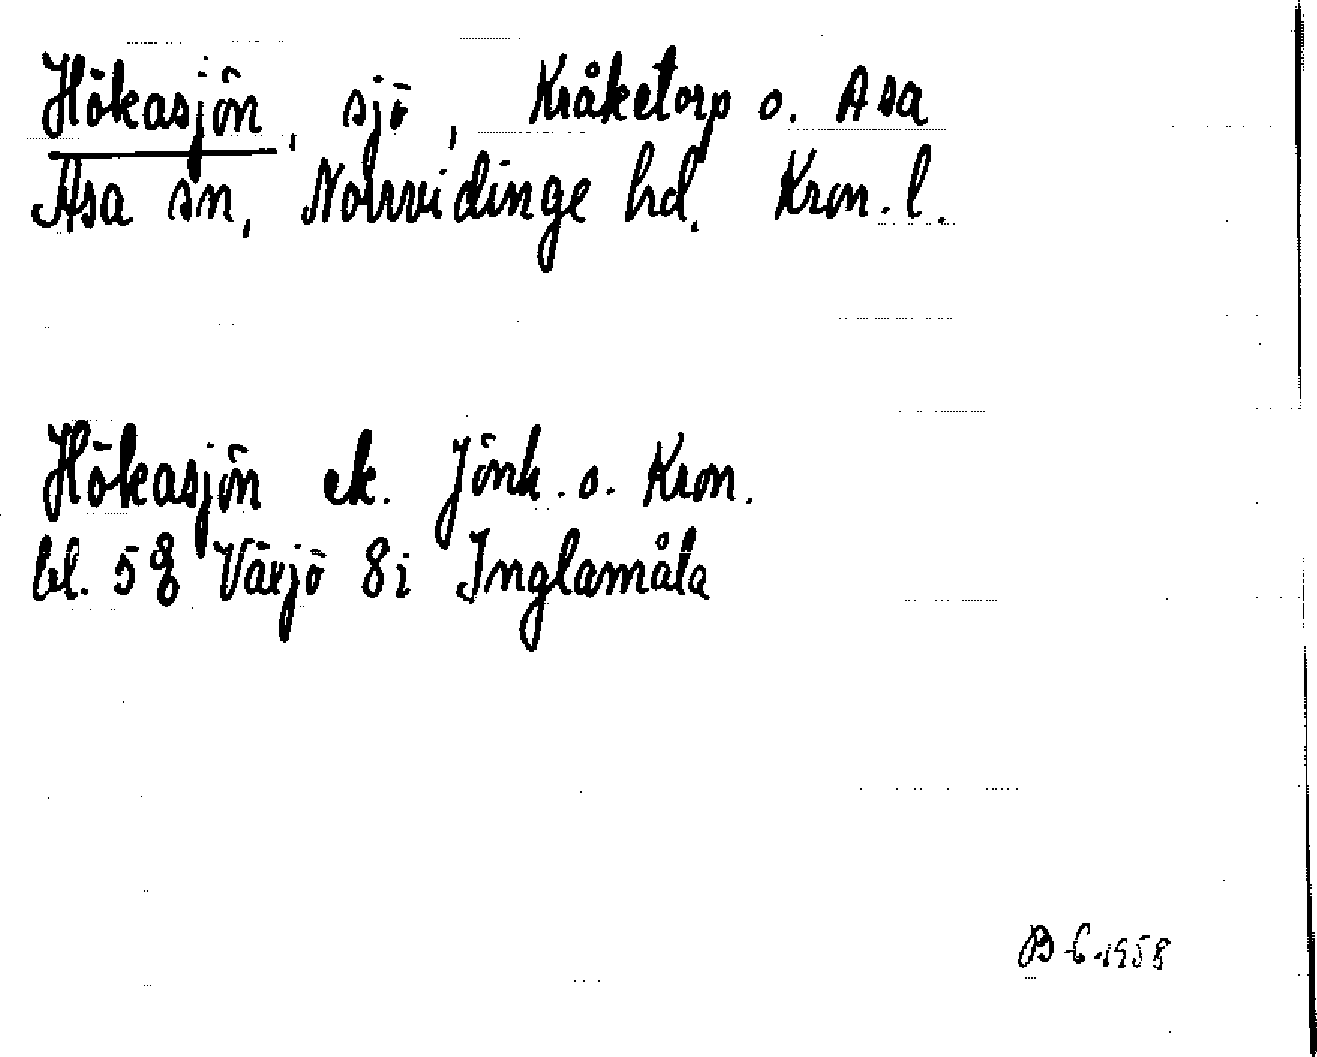 Hökasjön, sjö, Kråketorp o. Asa
Asa sn, Norrvidinge hd. Kron. l.
Hökasjön ek. Jönk. o. Kron.
bl. 58 Växjö 8i Inglamåla
B 6.1958